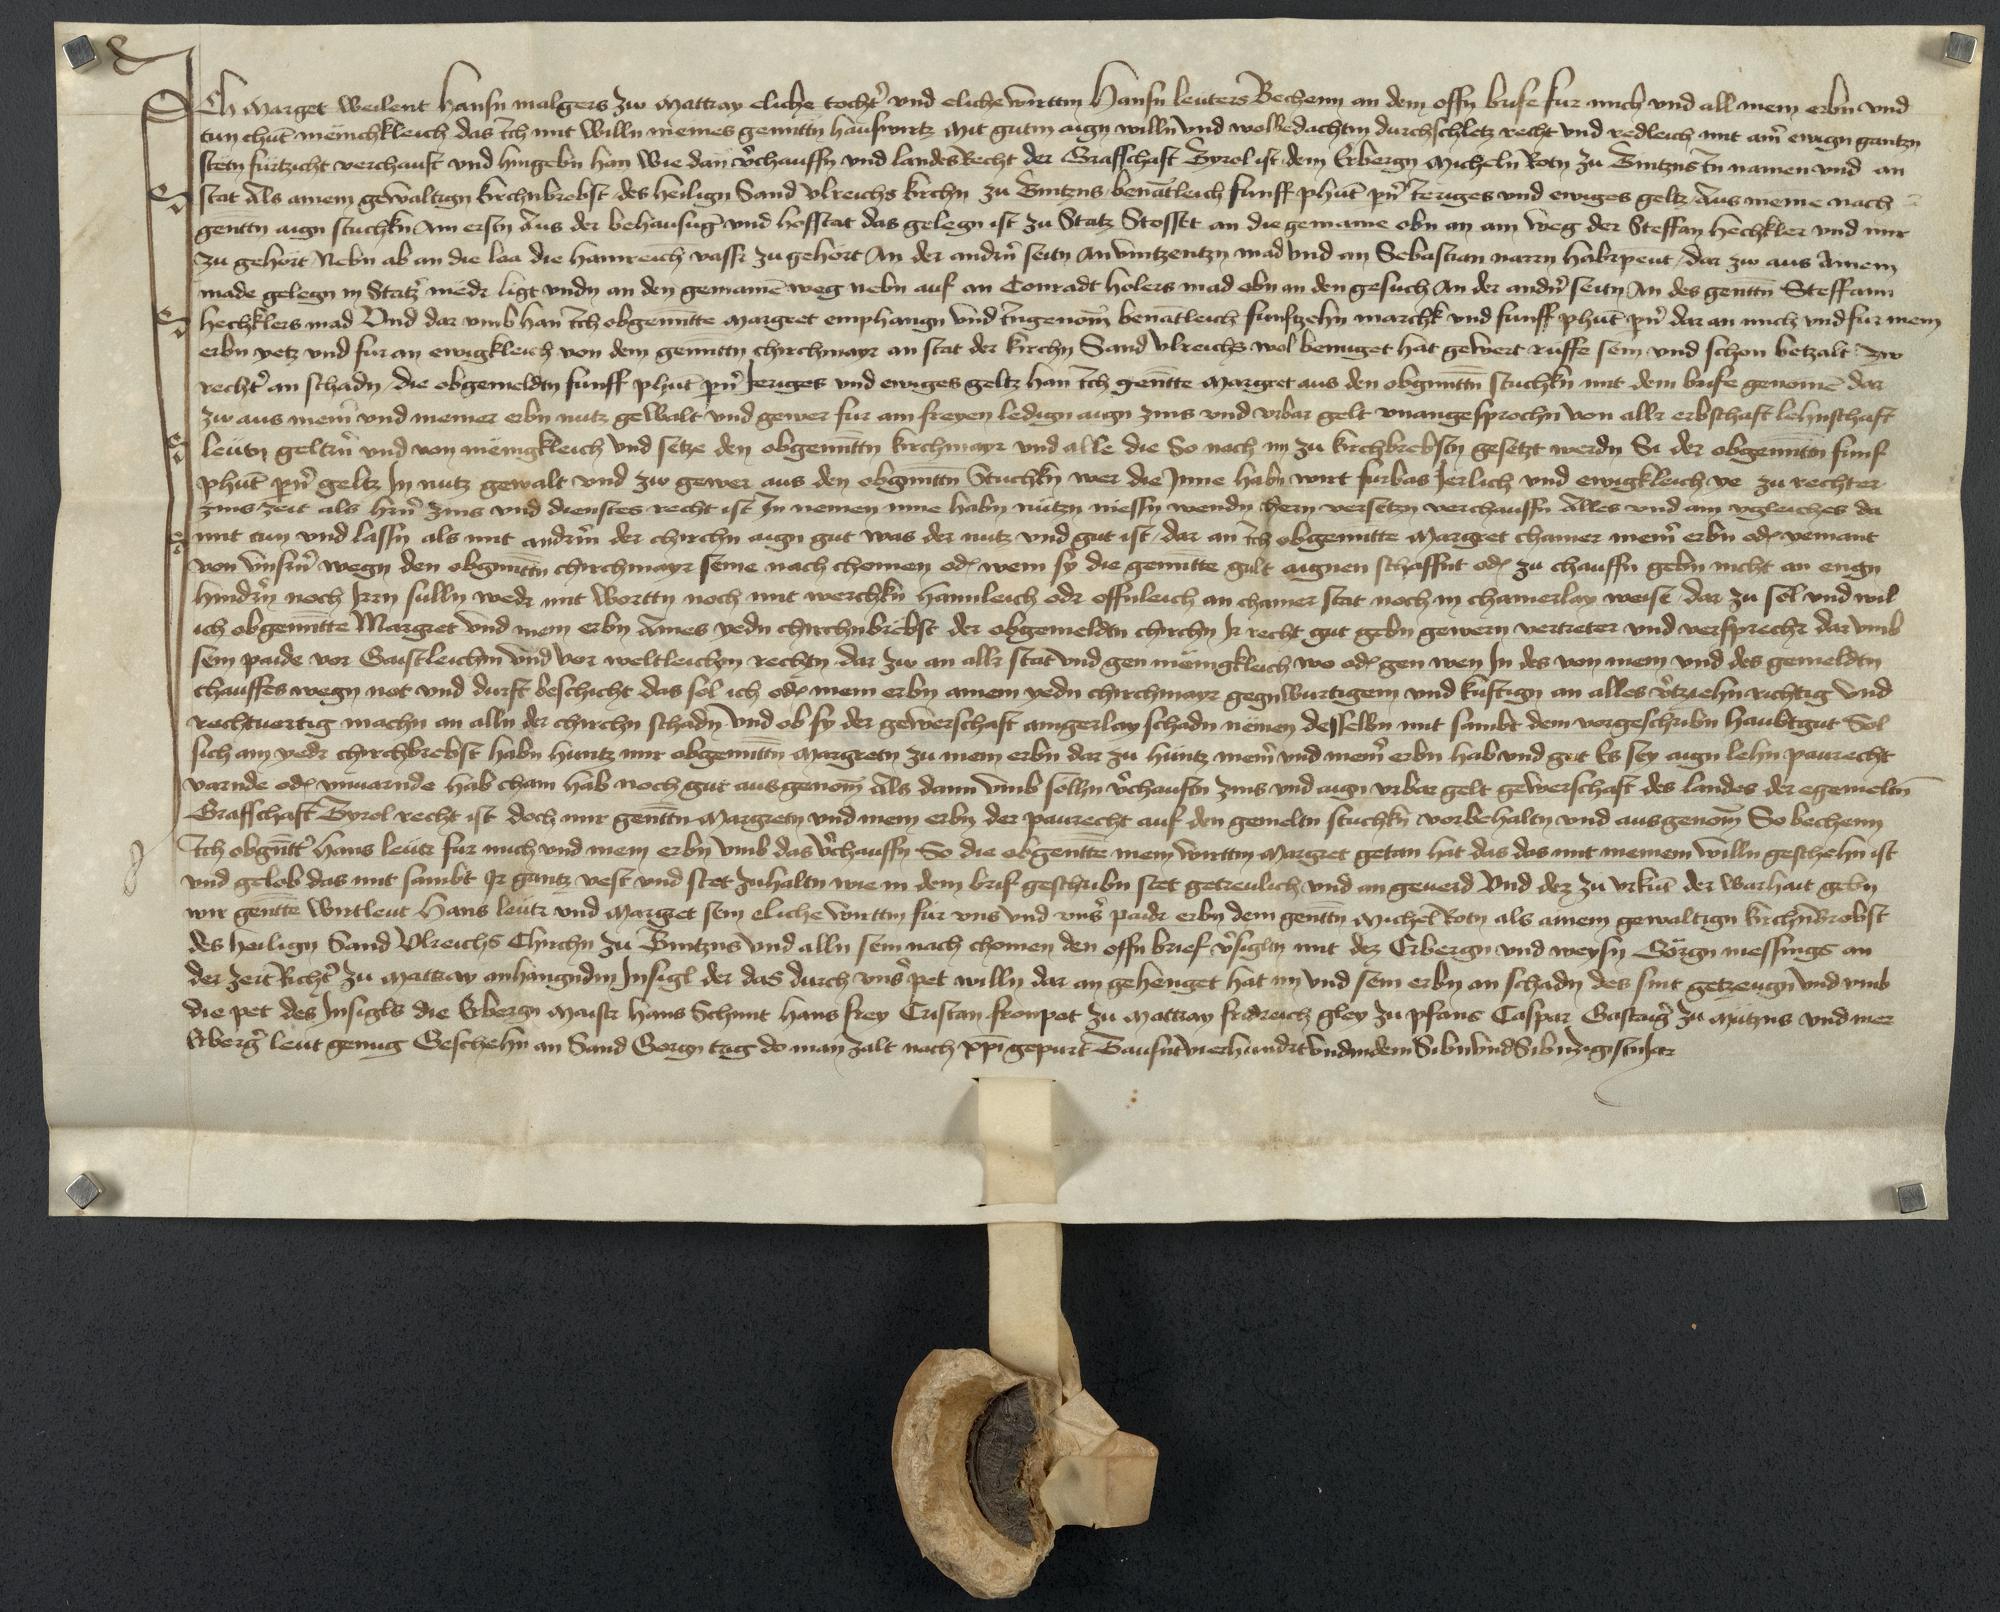 Ich Marget weilent Hansn malgers zw Mattray eliche tochtʼ und eliche wirttin Hansn leuters Bechenn an dem offn briefe fur mich und all mein erbn und
tun chūt mënichkleich das Ich mit willn meines genntn hauswirtz Mit gutm aign willn und wolbedachtm durchschletz recht und redleich mit aimʼ ewign gantzn
stëtn furtzicht verchauft und hingebn han Wie dan vʼchauffn und landes Recht der Graffschaft Tyrol ist dem Erbergn Micheln Rotn zu Tintzns In namen und an
stat Als ainem gewaltign kirchnbrebst des heilign Sand Ulreichs kirchn zu Tintzns benātleich funff phūt pnʼ Ieriges und ewiges geltz Aus meine nach
genttn aign stuchkn Am erstn Aus der behausūg und hoffstat das gelegn ist zu Statz Stosset an die gemaine obn an ain weg der Steffan hechkler und mir
zu gehört Nebn ab an die laa die hainreich vassr zu gehört An der andrn seitn An vintzentzn mad und an Sebastian narrn habrpeut / dar zw aus Ainem
made gelegn in Statzʼ medr ligt undn an den gemainē weg nebn auf an Conradt holers mad obn an den gesuch An der andrn seitn An des genttn Steffann
hechklers mad Und dar umb han Ich obgenntte Margret emphangn und Ingenomn benātleich funftzehn marchk und funff phūt pnʼ dar an mich und fur mein
erbn yetz und fur an ewigkleich von dem genntn chirchmayr an stat der kirchn Sand Ulreichs wol benuget hat gewert ruffe sein und schon betzalt zw
rechtʼ an schadn / die obgemeldtn funff phūt pnʼ Ieriges und ewiges geltz han Ich gentte Margret aus den obgnntn stuchkn mit dem briefe genomē dar
zw aus meinʼ und meiner erbn nutz gewalt und gewer fur ain freyen ledign aign zins und urbar gelt unangesprochn von allr erbschaft lehnschaft
leutn geltrn und von menigkleich und setze den obgenntn kirchmayr und alle die So nach im zu kirchbrebstn gesetzt werdn Si der obgenntn funf
phūt pnʼ geltz In nutz gewalt und zw gewer aus den obgnntn Stuchkn wer die Inne habn wirt furbas Ierlich und ewigkleich ye zu rechter
zins zeit als hrnʼ zins und dienstes recht ist In nemen inne habn nützn niessn wendn chern versetzn verchauffn Alles und ain ygleiches da
mit tun und lassn als mit andrmʼ der chirchn aign gut was der nutz und gut ist / dar an Ich obgenntte Margret chainer meinʼ erbn odr yemant
von unsrnʼ wegn den obgnntn chirchmayr seine nach chomen odr wem sy die genntte gult aignen schaffnt odr zu chauffn gebn nicht an engn
hindrʼn noch Irrn sulln wedr mit worttn noch mit werchkn haimleich odr offnleich an chainer stat noch in chainerlay weise / dar zu sol und wil
ich obgenntte Margret und mein erbn Aines yedn chirchnbrebst der obgemeldtn chirchn Ir recht gut gebn gewern vertreter und versprechr dar umb
sein paide vor Gaistleichm und vor weltleichm rechtn dar zw an allr stat und gen mënigkleich wo odr gen wen In des von mein und des gemeldtn
chauffes wegn not und durft beschicht das sol ich odr mein erbn ainem yedn chirchmayr gegnwurtigem und kūftign an alles vʼtziehn richtig und
rechtvertig machn an alln der chirchn schadn Und ob sy der gewerschaft aingerlay schadn nëmen desselbn mit sambt dem vorgeschribn haubtgut Sol
sich ain yedr chirchbrebst habn huntz mir obgenntn Margretn zu mein erbn dar zu huntz meinʼ und meinʼ erbn hab und gut Es sey aign lehn paurecht
varnde odr unvarnde hab chain hab noch gut ausgenom̄ Als dann umb solhn vʼchauftn zins und aign urbar gelt gewerschaft des landes der egemeltn
Graffschaft Tyrol recht ist doch mir genttn Margretn und mein erbn der paurecht auf den gemeltn stuchkn vorbehaltn und ausgenom̄ So bechenn
Ich obgnttʼ hans leutr fur mich und mein erbn umb das vʼchauffn So die obgentte mein wirttin Margret getan hat das das mit meinem willn geschehn ist
und gelob das mit sambt Ir gantz vest und stet zuhaltn wie in dem brif geschribn stet getreulich und an geverd Und dez zu urkūt der warhait gebn
wir gentte wirtleut Hans leutr und Margret sein eliche wirttin für uns und unsʼ paidr erbn dem genttn Michel Rotn als ainem gewaltign kirchnbrobst
des heilign Sand Ulreichs Chirchn zu Tintzns und alln sein nach chomen den offn brief vʼsigltn mit dez Erbergn und weysn Görgn messings an
der zeit Richtʼ zu Mattray anhangndm Insigl der das durch unsʼ pet willn dar an gehenget hat im und sein erbn an schadn des sint getzeugn und umb
die pet des Insigls die Erbergn Maistr Hans Schmit Hans frey Cristan fronpot zu Mattray fridreich gley zu pfans Caspar Gastaigʼ zu Mützns und mer
Erbergʼ leut genug Geschehn an Sand Gorign tag do man zalt nach xpi gepurt Tausnt vierhundrt und in dem Sibn und Sibnzigistn Jar